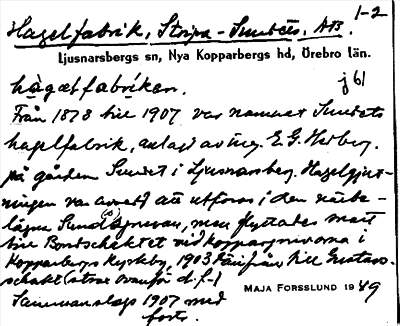 1-2
Hagelfabrik, Stripa - Sundets, AB.
Ljusnarsbergs sn, Nya Kopparbergs hd, Örebro län.
hågælfabriken. j 61
Från 1878 till 1907 var namnet Sundets
hagelfabrik, anlagd av ing. E. G. Hedberg.
på gården Sundet i Ljusnarsberg. Hagelgjut-
ningen var avsedd att utföras i den närbe-
lägna Sund(s)gruvan, men flyttades snart
till Bondschaktet vid koppargruvorna i
Kopparbergs kyrkby, 1903 därifrån till Gustavs-
schakt (strax ovanför d. f.)
Sammanslogs 1907 med
forts.
MAJA FORSSLUND 1949